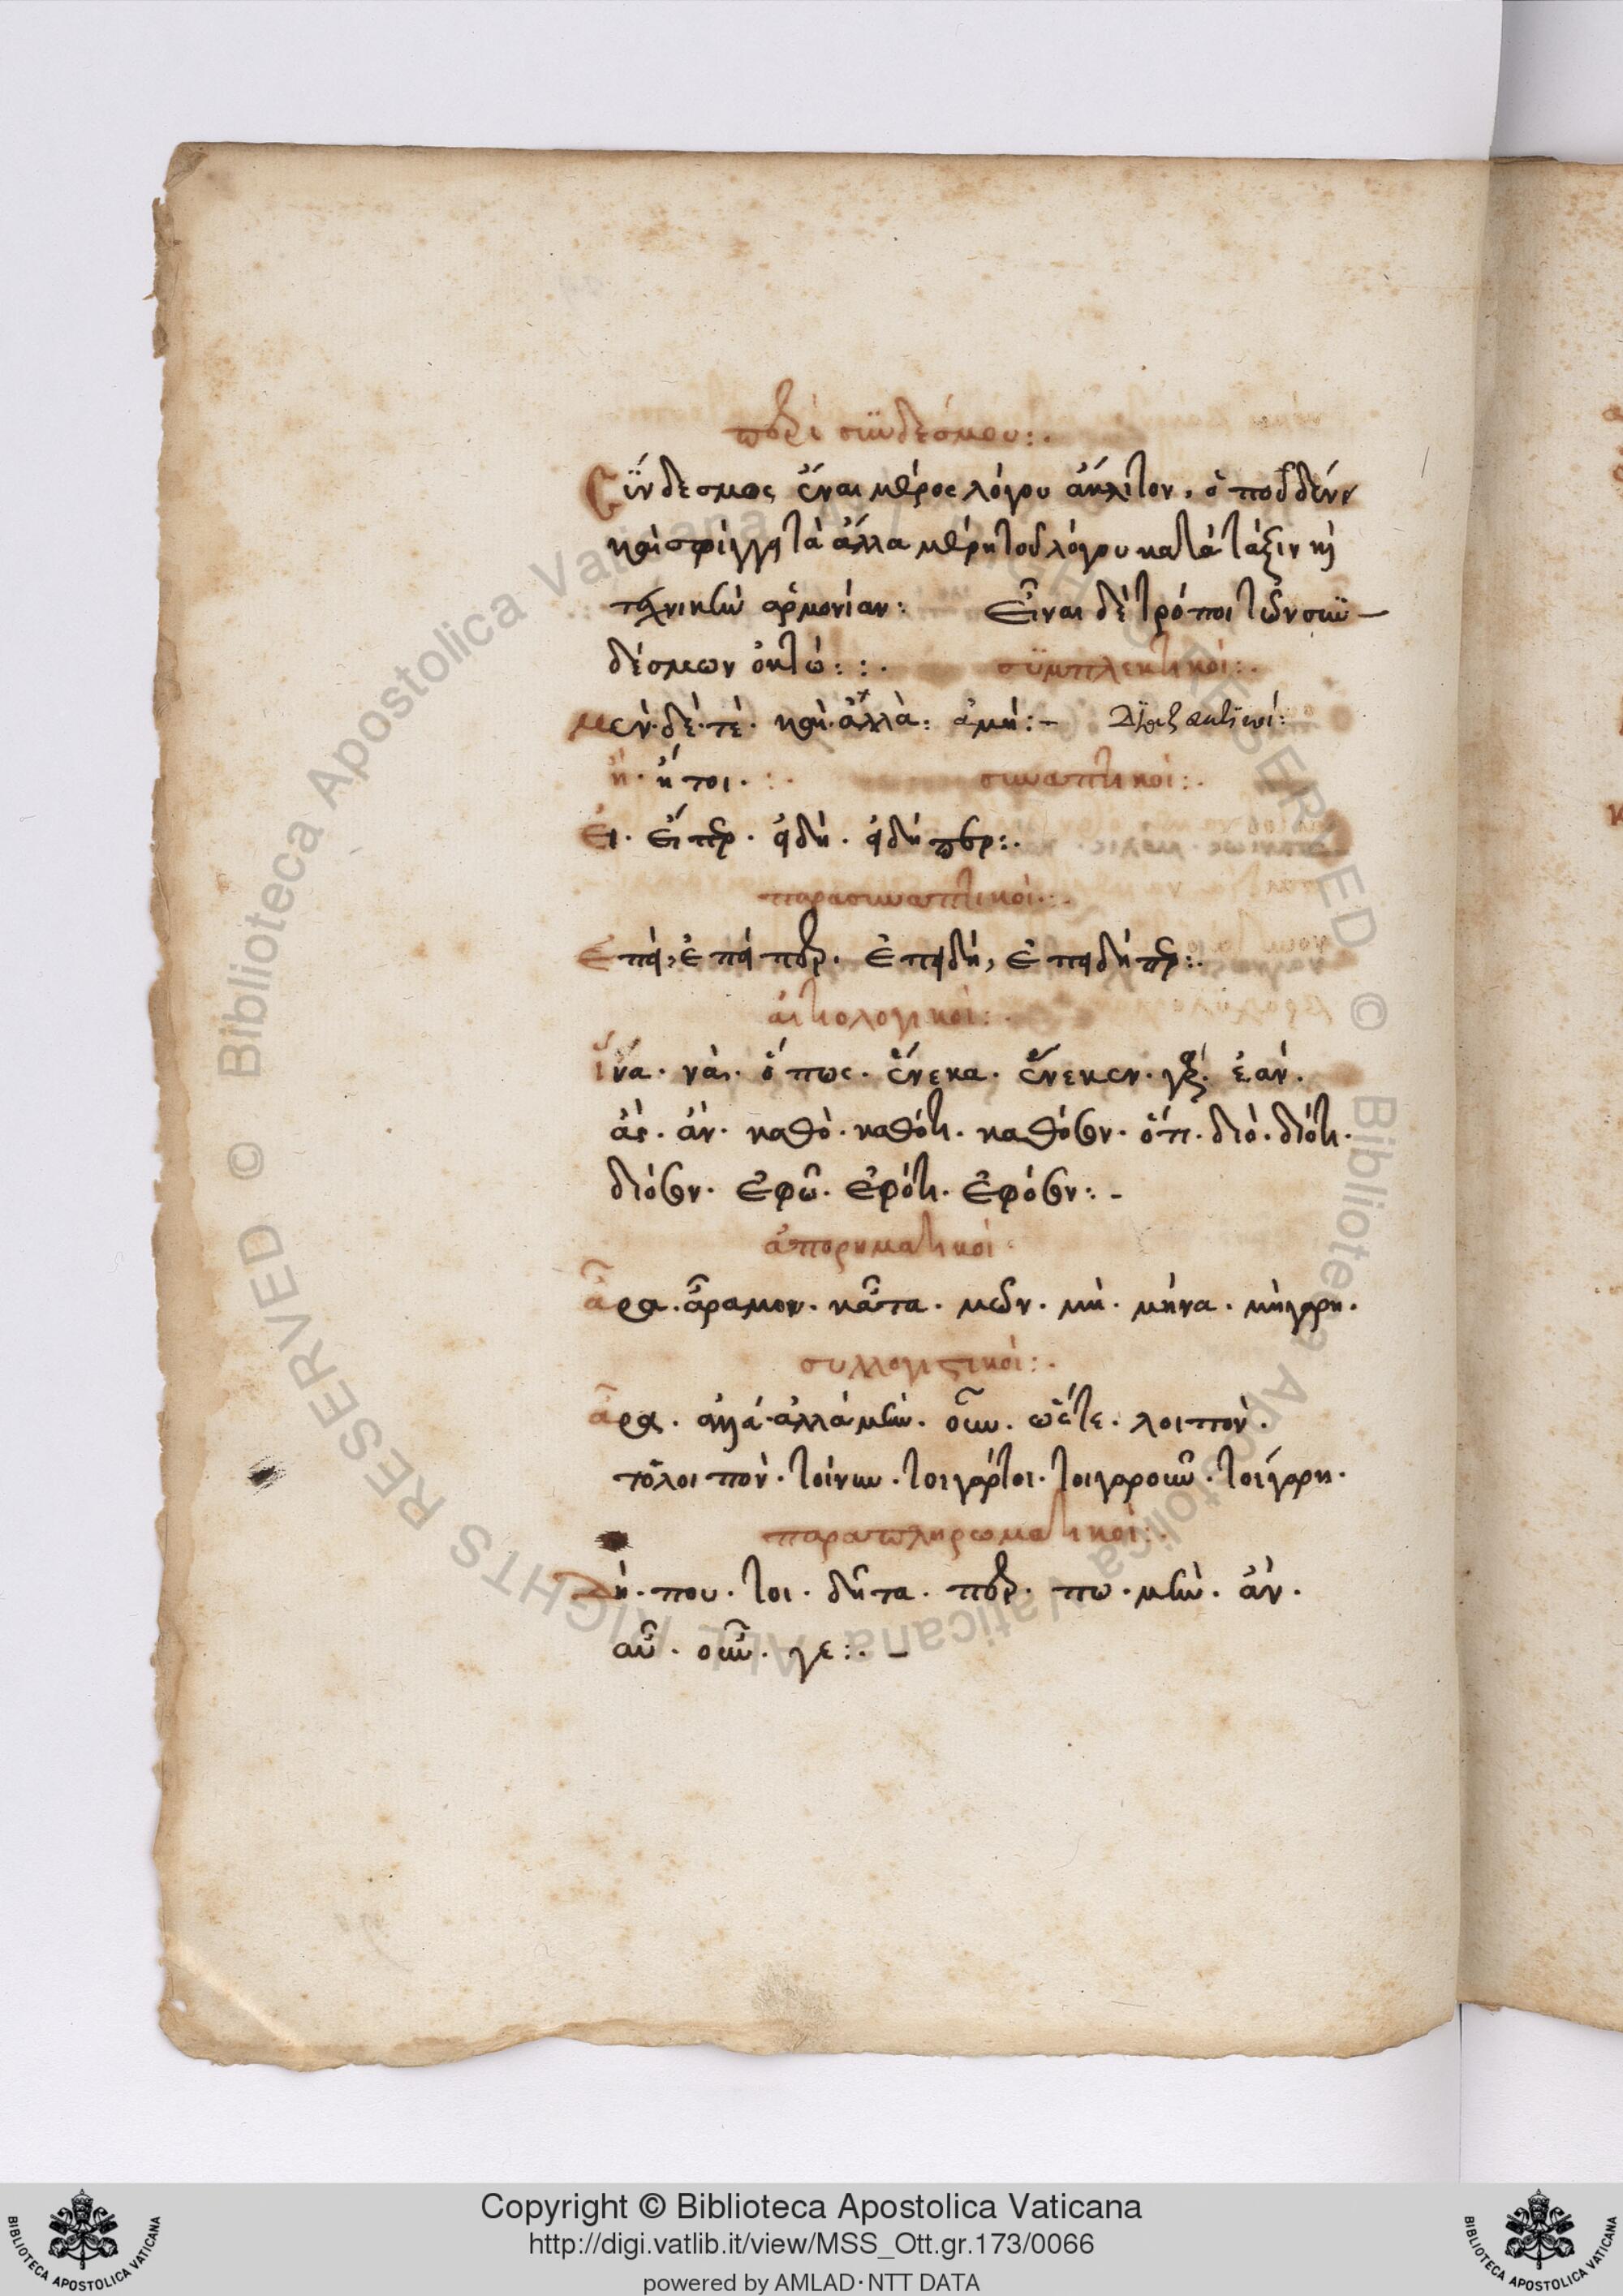 περὶ συνδέσμου:.
Σύνδεσμος ἔναι μέρος λόγου ἄκλιτον, ὁποῦ δένει
καὶ σφίγγη τὰ ἄλλα μέρη τοῦ λόγου κατὰ τάξιν κὶ
τεχνικὴν ἁρμονίαν: Εἶναι δὲ τρόποι τῶν συν-
δέσμων ὀκτώ:: . συμπλεκτικοί:.
μεν· δέ· τὲ· καὶ· ἀλλὰ: ἀμή:- Διαζευκτικοί:
ἢ· ἤτοι· :. συναπτικοί:.
Ει· εἴπερ· εἰδὴ· εἰδήπερ:.
παρασυναπτικοί:.
Επεί, ἐπείπερ· ἐπειδή, ἐπειδήπερ:.
αἰτιολογικοί:.
ἵνα· νὰ· ὅπως· ἕνεκα· ἕνεκεν· ἐάν·
ἂς· ἂν· καθὸ· καθότι· καθόσον· ὅτι· διὸ· διότι·
διόσον· ἐφῶ· ἐφότι· ἐφόσον:-
ἀπορηματικοί·
ἆρα· ἆραμον· κᾆτα· μῶν· μὴ· μήνα· μὴγαρη·
συλλογιστικοί:.
ἆρα· ἀλλά· ἀλλάμὴν· οὖν· ὥστε· λοιπὸν·
τὸλοιπὸν· τοίνυν· τοιγάρτοι· τοιγαροῦν· τοιγαρη·
παραπληρωματικοί:.
Δή· που· τοι· δῆτα· περ· πω· μὴν· ἂν·
αὖ· οὖν· γε:.-
Copyright © Biblioteca Apostolica Vaticana
http://digi.vatlib.it/view/MSS_Ott.gr.173/0066
powered by AMLAD·NTT DATA
BIBLIOTECA APOSTOLICA VATICANA
BIBLIOTECA APOSTOLICA VATICANA
© Biblioteca Apostolica Vaticana ALL RIGHTS RESERVED © Biblioteca Apostolica Vaticana ALL RIGHTS RESERVED